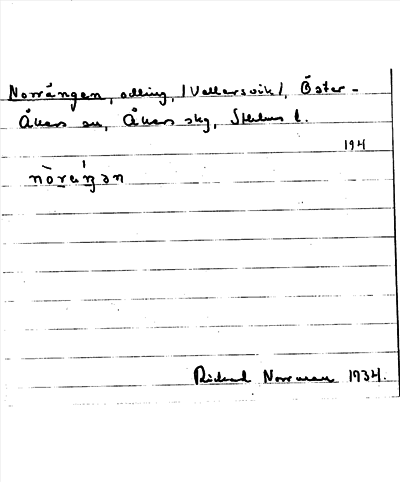 Norrängen, odling, (Vallersvik), Öster-
Åkers sn, Åkers skg, Sthlms l.
194
nòrέŋən
Rickard Norrman 1934.